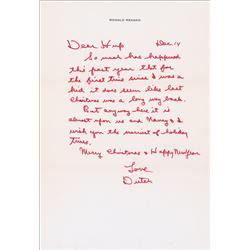 RONALD REAGAN
Dear Hups Dec. 14
So much has happened
this past year that for
the first time since I was a
kid it does seem like last
Christmas was a long way back.
But anyway here it is
almost upon us and Nancy & I
wish you the merriest of holiday
times.
Merry Christmas & Happy New Year
Love
Dutch